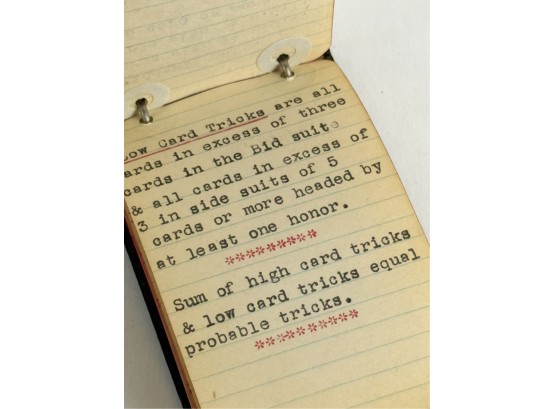 Low Card Tricks are all
cards in excess of three
cards in the Bid suite
& all cards in excess of
3 in side suits of 5
cards or more headed by
at least one honor.
*********
Sum of high card tricks
& low card tricks equal
probable tricks.
**********